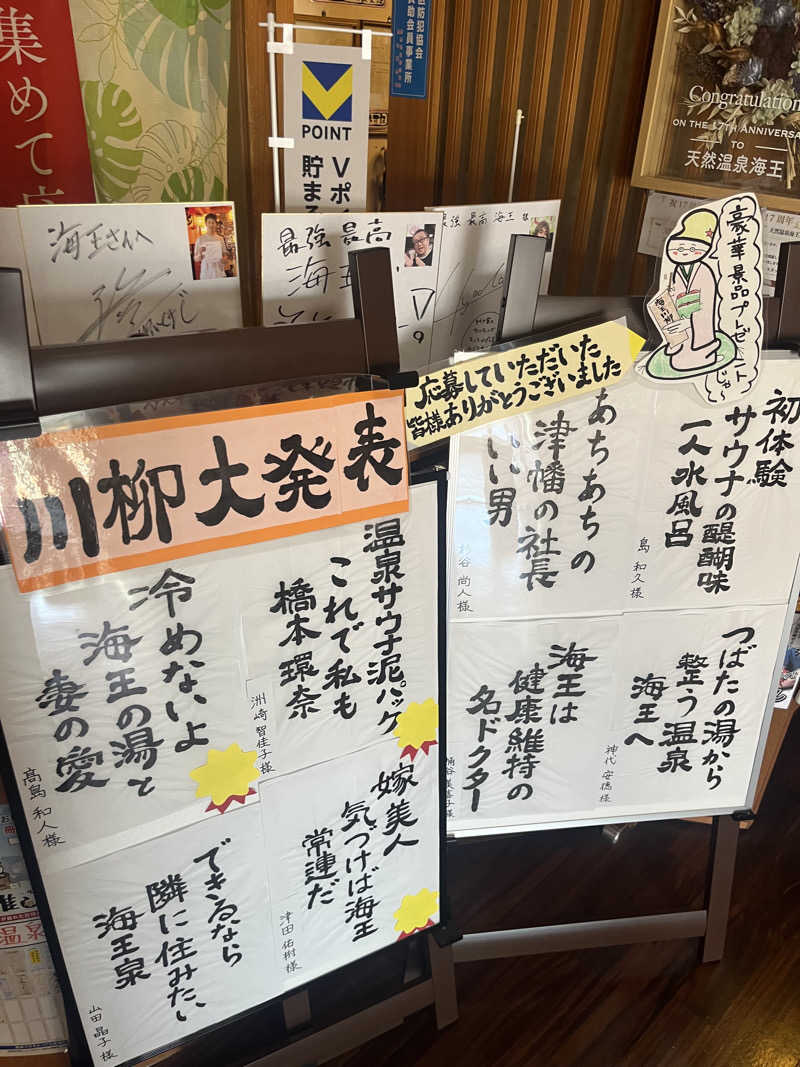 集めて
V
POINT
Vポイ
貯まる
防犯協会
助会員事業所
Congratulation
ON THE 17TH ANNIVERSA
TO
天然温泉海王
海王さん江
最強 最高
海王
豪華景品プレゼント
じゃ〜
応募していただいた
皆様ありがとうございました
川柳大発表
温泉サウナ泥パック
これで私も
橋本環奈
洲崎 智佳子様
冷めないよ
海王の湯と
妻の愛
高島 和人様
嫁美人
気づけば海王
常連だ
津田 佑樹様
できるなら
隣に住みたい
海王泉
山田 晶子様
初体験
サウナの醍醐味
一人水風呂
島 和久様
あちあちの
津幡の社長
いい男
杉谷 尚人様
つばたの湯から
整う温泉
海王へ
神代 安徳様
海王は
健康維持の
名ドクター